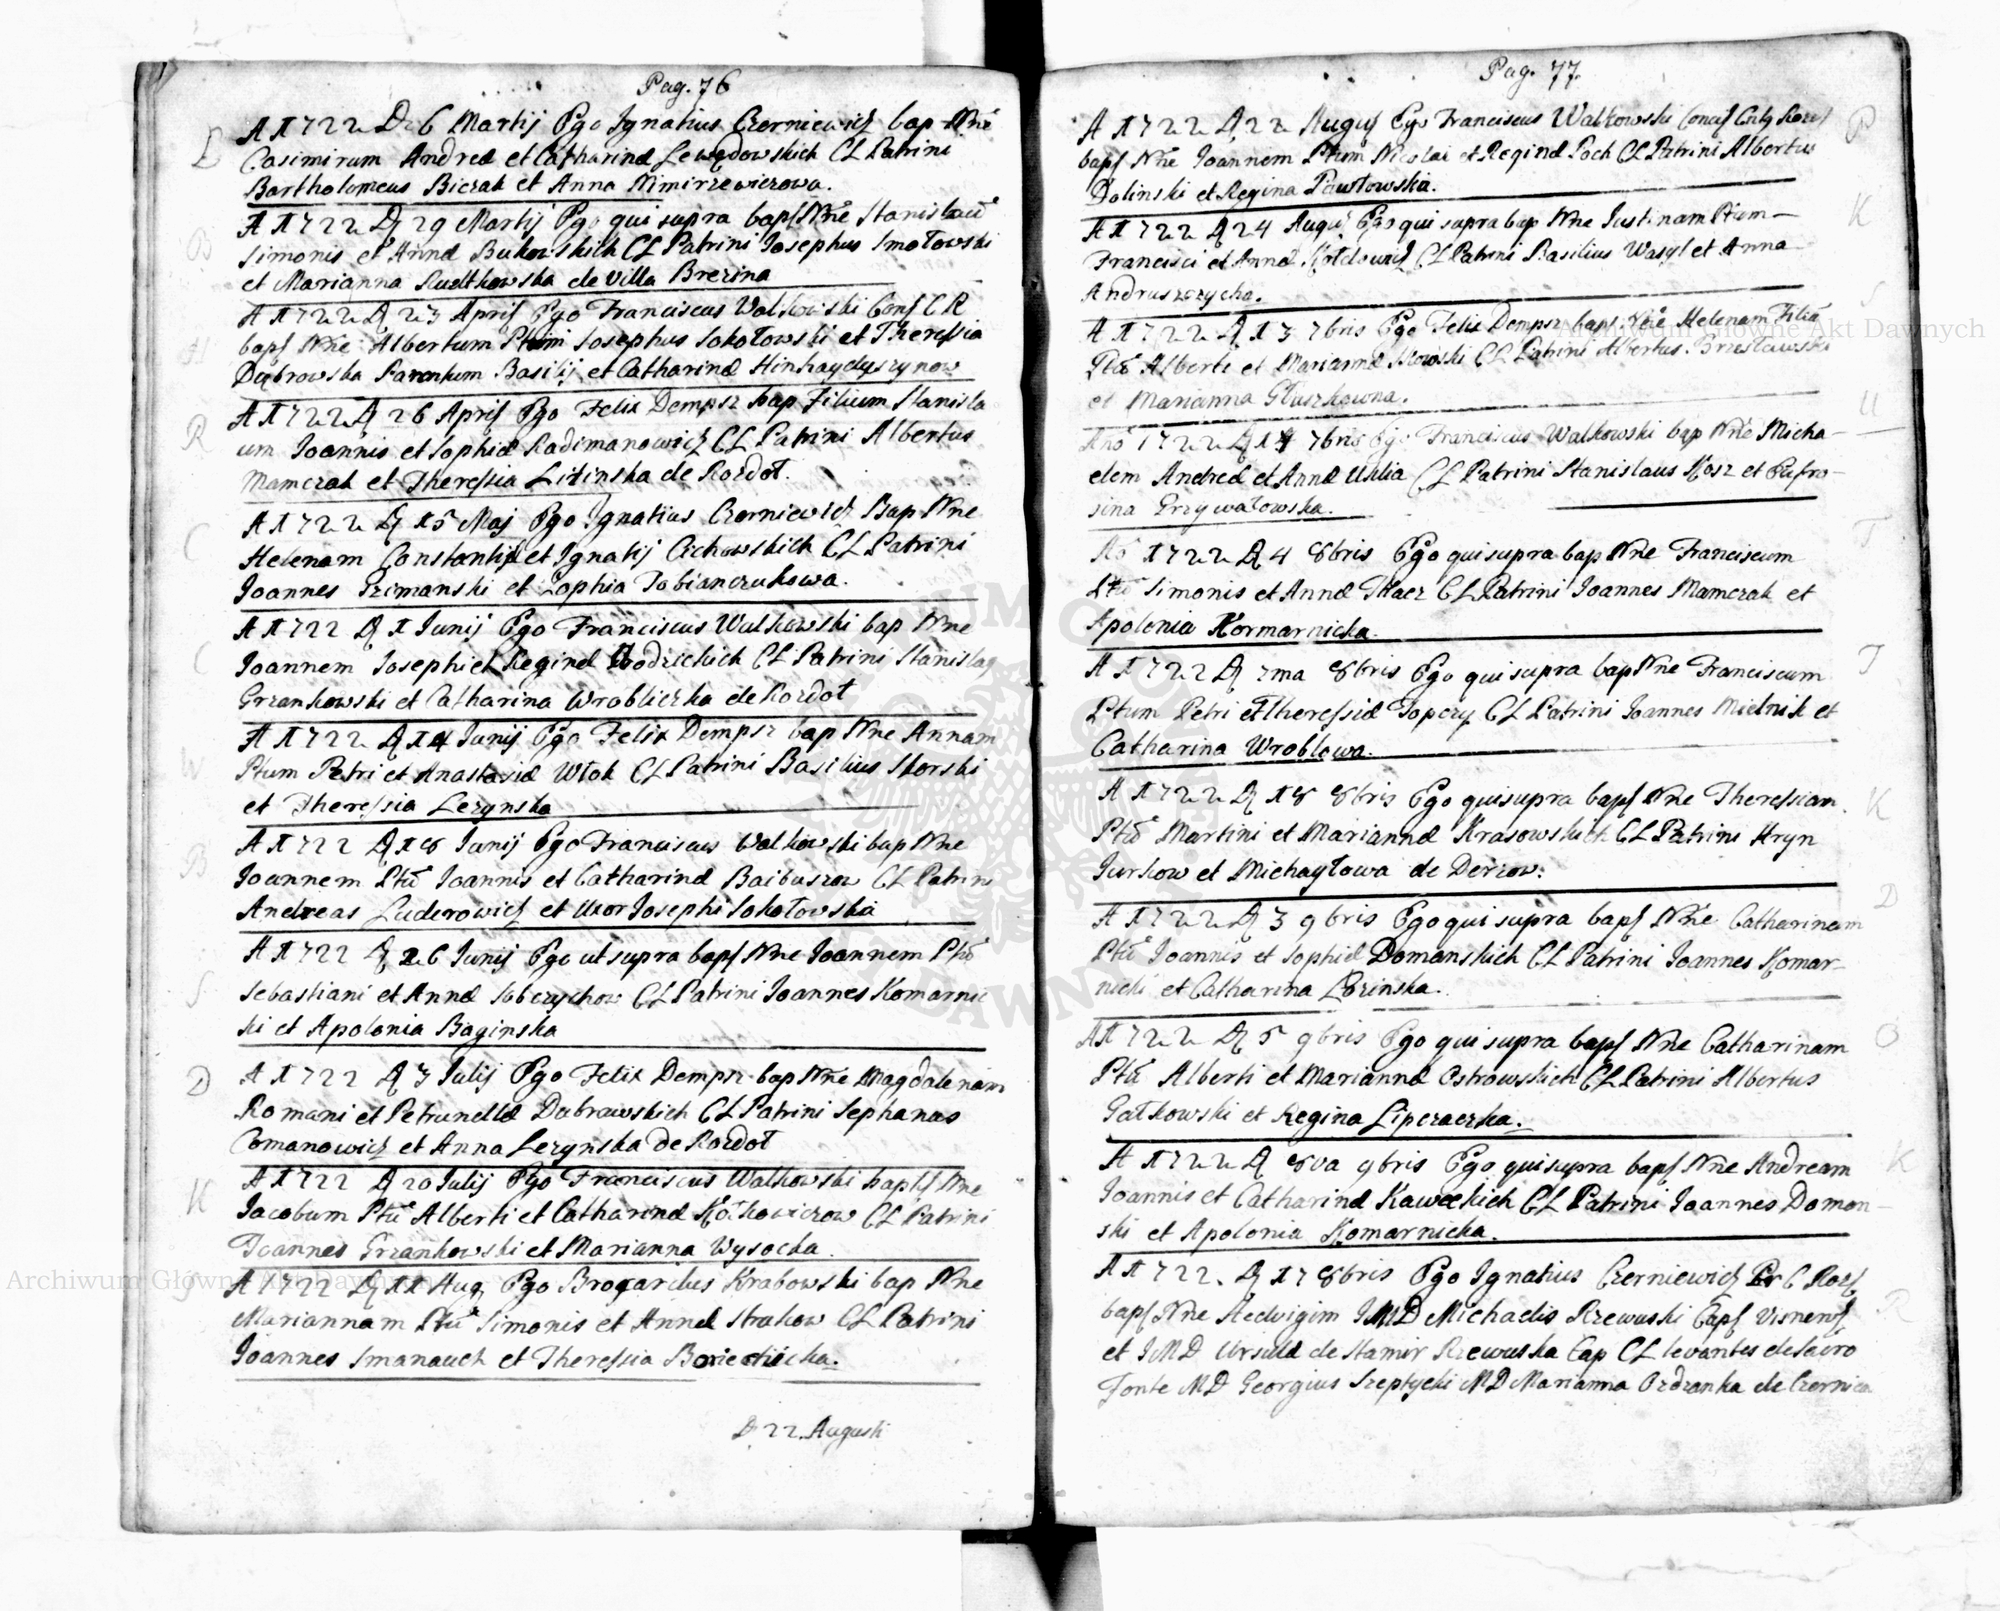 Pag. 76
A 1722 D 6 Martij Ego Ignatius Czerniewicz bap Nne
L Casimirum Andreæ et Catharinæ Lewądowskich CL Patrini
Bartholomeus Bierzak et Anna Nimirzewiczowa.
A 1722 D 29 Martij Ego qui supra bapt Nne Stanislaū
B Simonis et Annæ Bukowskich CL Patrini Iosephus Smołowski
et Marianna Rudtkowska de villa Brezina
A 1722 D 23 April Ego Franciscus Walkowski Conf C R
H bapt Nne Albertum Ptum Iosephus Sokołowski et Theressia
Dąbrowska Parentum Basilij et Catharinæ Hinhaydyszynow
A 1722 D 26 April Ego Felix Dempsz bap Filium Stanisla
R um Ioannis et Sophiæ Radimanowicz CL Patrini Albertus
Mamczak et Theressia Litinska de Rozdoł.
A 1722 D 15 Maj Ego Ignatius Czerniewicz Bap Nne
C Helenam Constantij et Ignatij Cichowskich CL Patrini
Ioannes Szimanski et Zophia Tobianczukowa.
A 1722 D 1 Iunij Ego Franciscus Walkowski bap Nne
C Ioannem Iosephi et Reginæ Chodzickich CL Patrini Stanislaq
Grzankowski et Catharina Wrobliczka de Rozdoł
A 1722 D 14 Iunij Ego Felix Dempsz bap Nne Annam
W Ptum Petri et Anastasiæ Włok CL Patrini Basilius Skorski
et Theressia Lezynska
A 1722 D 18 Iunij Ego Franciscus Walkowski bap Nne
B Ioannem Ptū Ioannis et Catharinæ Baibuszow CL Patrin
Andreas Luderowicz et Uxor Iosephi Sokołowska
A 1722 D 26 Iunij Ego ut supra bapt Nne Ioannem Ptū
S Sebastiani et Annæ Sobczychow CL Patrini Ioannes Komarnic
ki et Apolonia Baginska
D A 1722 D 3 Iulij Ego Felix Dempsz bap Nne Magdalenam
Romani et Petrunellæ Dubrawskich CL Patrini Sephanus
Comanowicz et Anna Lezynska de Rozdoł
A 1722 D 20 Iulij Ego Franciscus Walkowski bapt Nne
K Iacobum Ptū Alberti et Catharinæ Kołkowiczow CL Patrini
Ioannes Grzankowski et Marianna Wysocka.
S A 1722 D 11 Aug Ego Brocardus Krabowski bap Nne
Mariannam Ptū Simonis et Annæ Strakow CL Patrini
Ioannes Smanauch et Theressia
D 22. Augusti
Pag. 77.
A 1722 D 22 August Ego Franciscus Walkowski P
bapt Nne Ioannem Ptum Nicolai et Reginæ Poch CL Patrini Albertus
Dolinski et Regina Pawłowska.
A 1722 D 24 Augu Ego qui supra bap Nne Iustinam Ptum K
Francisci et Annæ CL Patrini Basilius Wasyl et Anna
Andruszczycha.
A 1722 D 13 7bris Ego Felix Dempsz bapt Nne Helenam Filiā S
Ptū Alberti et Mariannæ CL Patrini Albertus Brzesławski
et Marianna Głuszkowna.
Ano 1722 D 14 7bris Ego Franciscus Walkowski bap Nne Micha- U
elem Andreæ et Annæ Uulia CL Patrini Stanislaus Kosz et Eufro-
sina Grzywałowska.
Ao 1722 D 4 8bris Ego qui supra bap Nne Franciscum T
Ptū Simonis et Annæ Tkacz CL Patrini Ioannes Mamczak et
Apolonia Kormarnicka.
A 1722 D 7ma 8bris Ego qui supra bap Nne Franciscum T
Ptum Petri et Theressiæ Topczy CL Patrini Ioannes Mielnik et
Catharina Wroblowa.
A 1722 D 18 8bris Ego qui supra bapt Nne Theressiam K
Ptū Martini et Mariannæ Krasowskich CL Patrini Hryn
Iurkow et Michayłowa de Derzow.
A 1722 D 3 9bris Ego qui supra bapt Nne Catharinam D
Ptū Ioannis et Sophiæ Domanskich CL Patrini Ioannes Komar-
nicki et Catharina Lozinska.
A 1722 D 5 9bris Ego qui supra bapt Nne Catharinam O
Ptū Alberti et Mariannæ Ostrowskich CL Patrini Albertus
Gałkowski et Regina Lipczaczka.
A 1722 D 8va 9bris Ego qui supra bapt Nne Andream K
Ioannis et Catharinæ Kaweckich CL Patrini Ioannes Doman-
ski et Apolonia Komarnicka.
A 1722. D 17 8bris Ego Ignatius Czerniewicz Pr C Roz
bapt Nne Hedvigim IMD Michaelis Rzewuski Capt Visnens R
et IMD Ursulæ de Stamir Rzewuska Cap CL levantes de Sacro
Fonte MD Georgius Szeptycki MD Marianna Ozdzanka de Czernica
Archiwum Główne Akt Dawnych
Archiwum Główne Akt Dawnych
ARCHIWUM GŁÓWNE AKT DAWNYCH